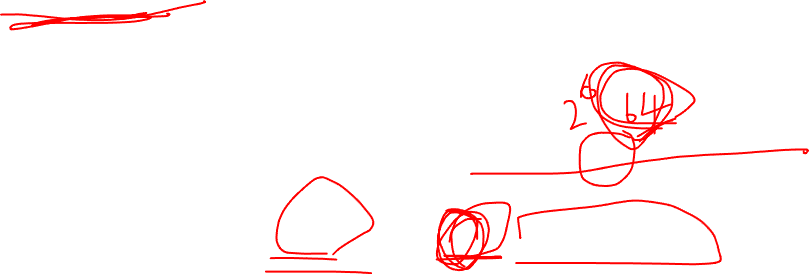 2⁶ 64